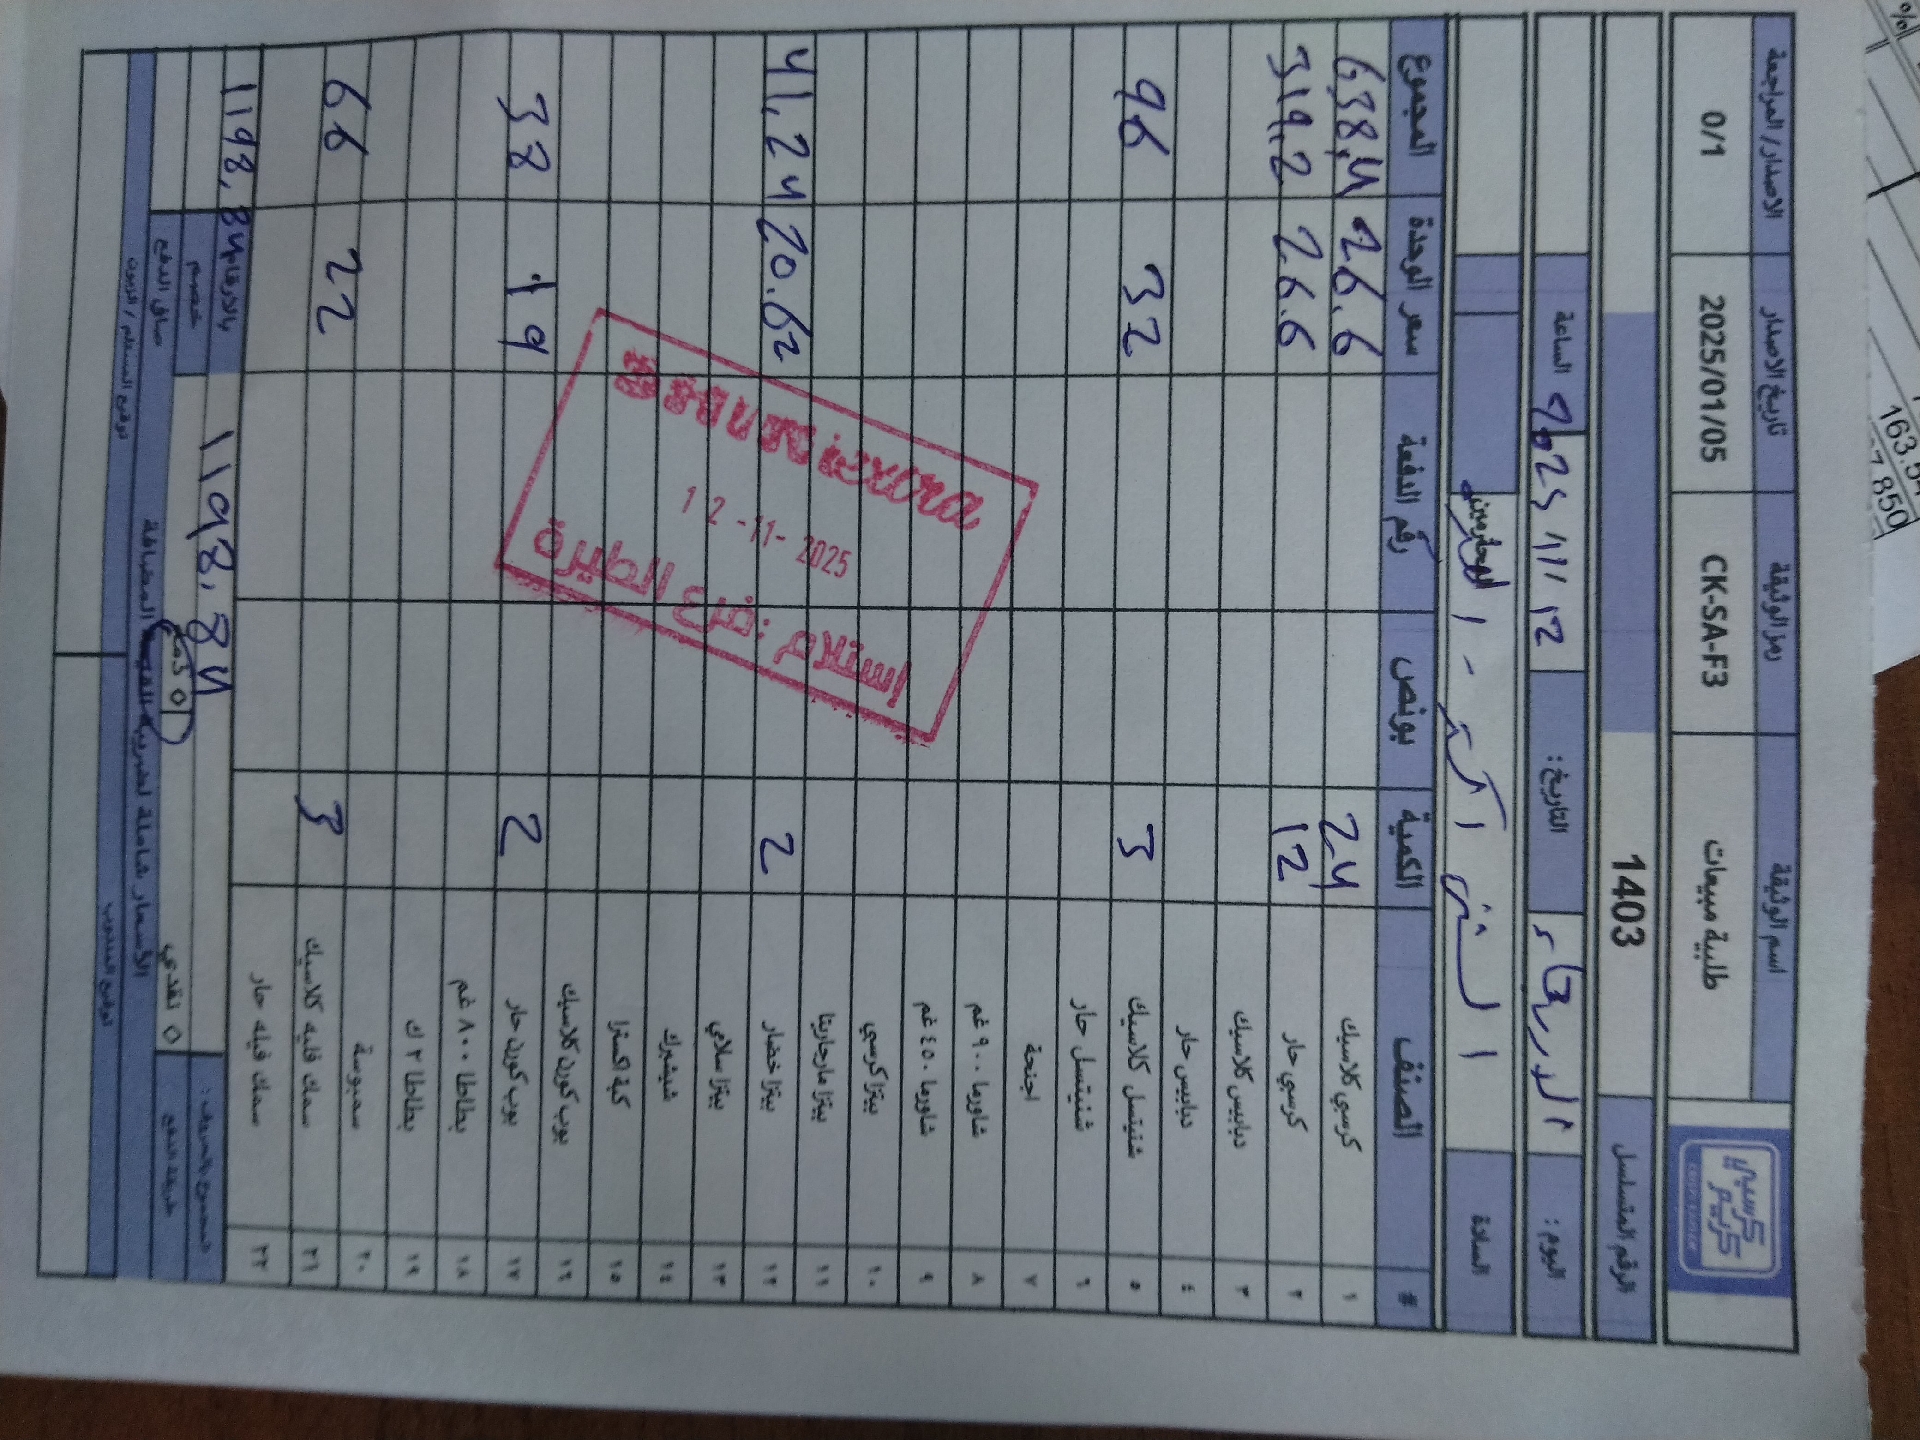 اسم الوثيقة رمز الوثيقة تاريخ الاصدار الاصدار/ المراجعة
طلبية مبيعات CK-SA-F3 2025/01/05 0/1
كرسبي كريم
الرقم المتسلسل 1403
اليوم: الاربعاء التاريخ: 12/11/2025 الساعة
السادة
# الصنف الكمية بونص رقم الدفعة سعر الوحدة المجموع
١ كرسبي كلاسيك 24 26.6 638,4
٢ كرسبي حار 12 26.6 319,2
٣ دبابيس كلاسيك
٤ دبابيس حار
٥ شنيتسل كلاسيك 3 32 96
٦ شنيتسل حار
٧ اجنحة
٨ شاورما ٩٠٠ غم
٩ شاورما ٤٥٠ غم
١٠ بيتزا كرسبي
١١ بيتزا مارجاريتا
١٢ بيتزا خضار 2 20.62 41,24
١٣ بيتزا سلامي
١٤ شيشبرك
١٥ كبة اكسترا
١٦ بوب كورن كلاسيك
١٧ بوب كورن حار 2 19 38
١٨ بطاطا ٨٠٠ غم
١٩ بطاطا ٢ ك
٢٠ سمبوسة
٢١ سمك فليه كلاسيك 3 22 66
٢٢ سمك فيله حار
المجموع بالحروف: 1198,84 بالارقام 1198,84
خصم
طريقة الدفع ◊ نقدي ◊ ذمم صافي الدفع
الأسعار شاملة لضريبة القيمة المضافة
توقيع المندوب توقيع المستلم / الزبون
12-11-2025
استلام: فرع الصويفية
163.5
850